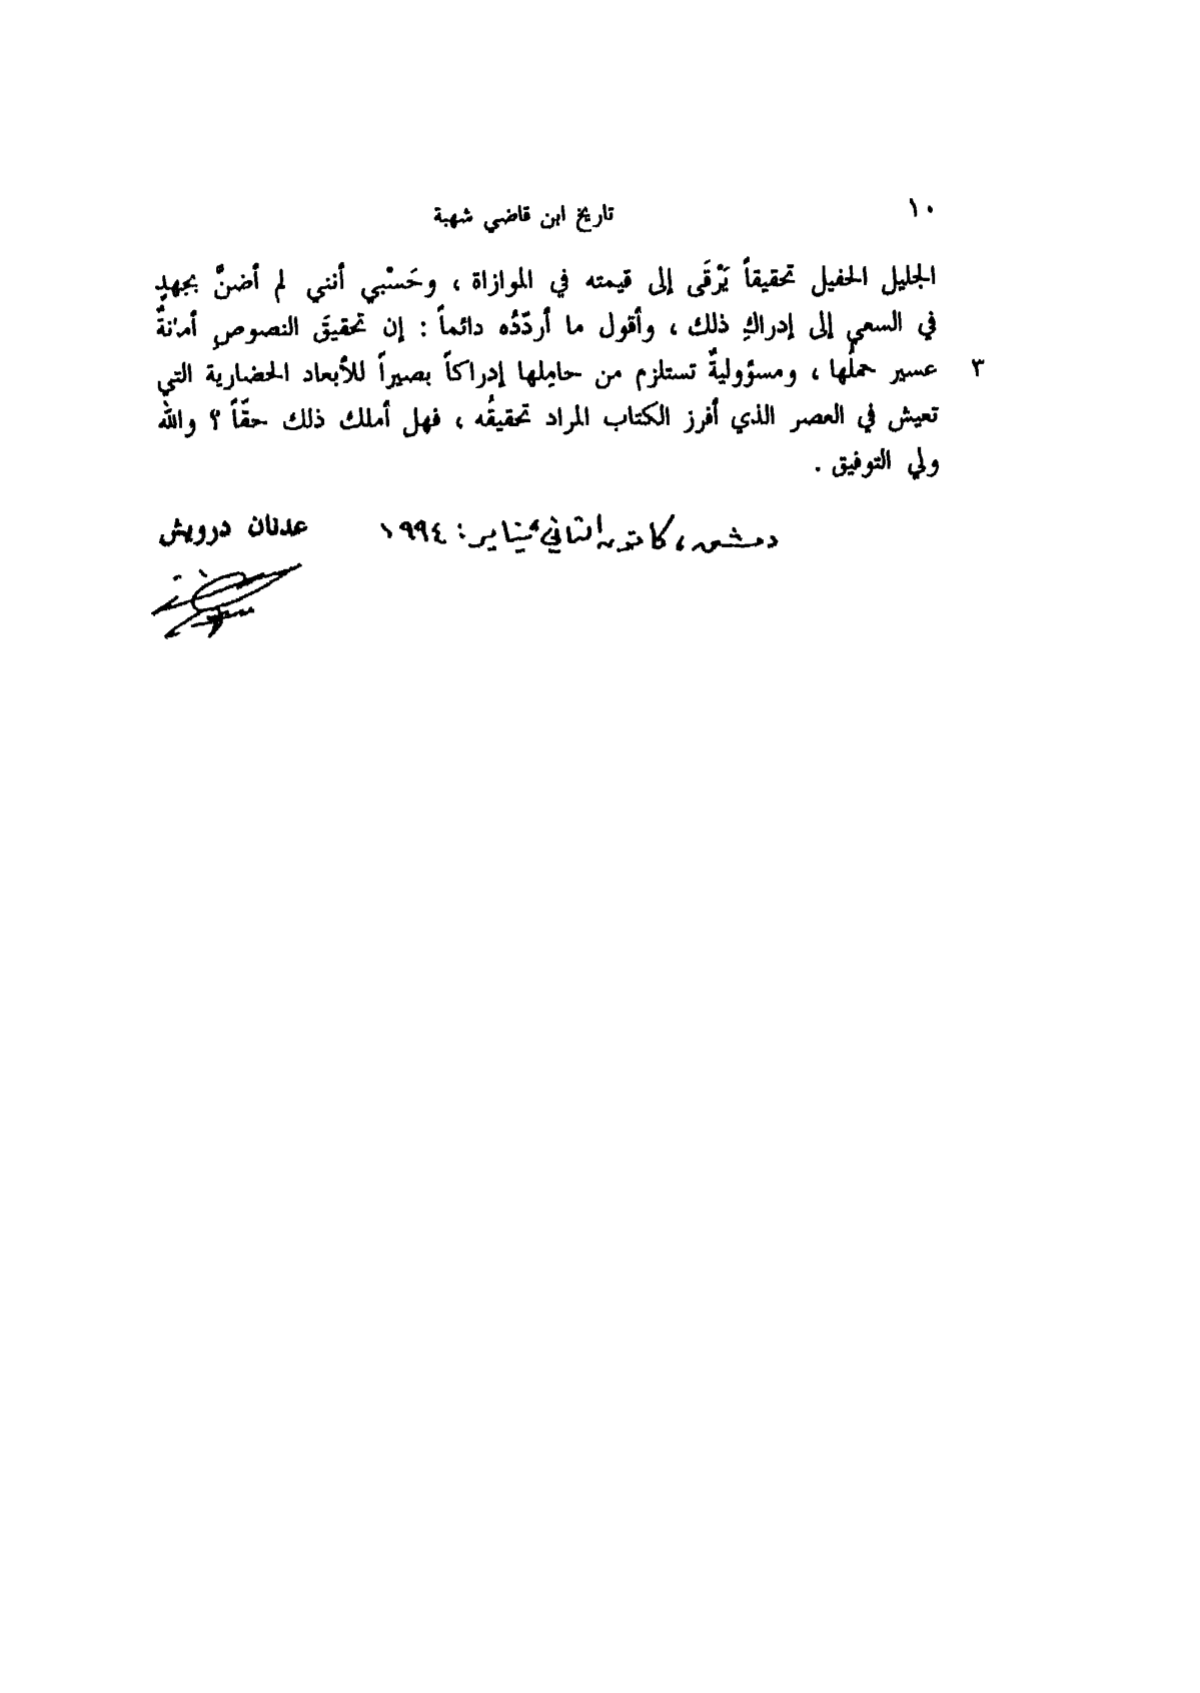 ١٠
تاريخ ابن قاضي شهبة
الجليل الحفيل تحقيقاً يَرْقَى إلى قيمته في الموازاة ، وحَسْبي أنني لم أضنَّ بجهدٍ
في السعي إلى إدراكِ ذلك ، وأقول ما أردّدُه دائماً : إن تحقيقَ النصوصِ أمانةٌ
٣
عسير حملُها ، ومسؤوليةٌ تستلزم من حامِلها إدراكاً بصيراً للأبعاد الحضارية التي
تعيش في العصر الذي أفرز الكتاب المراد تحقيقُه ، فهل أملك ذلك حقّاً ؟ والله
ولي التوفيق .
دمشق، كانون الثاني، يناير: ١٩٩٤
عدنان درويش